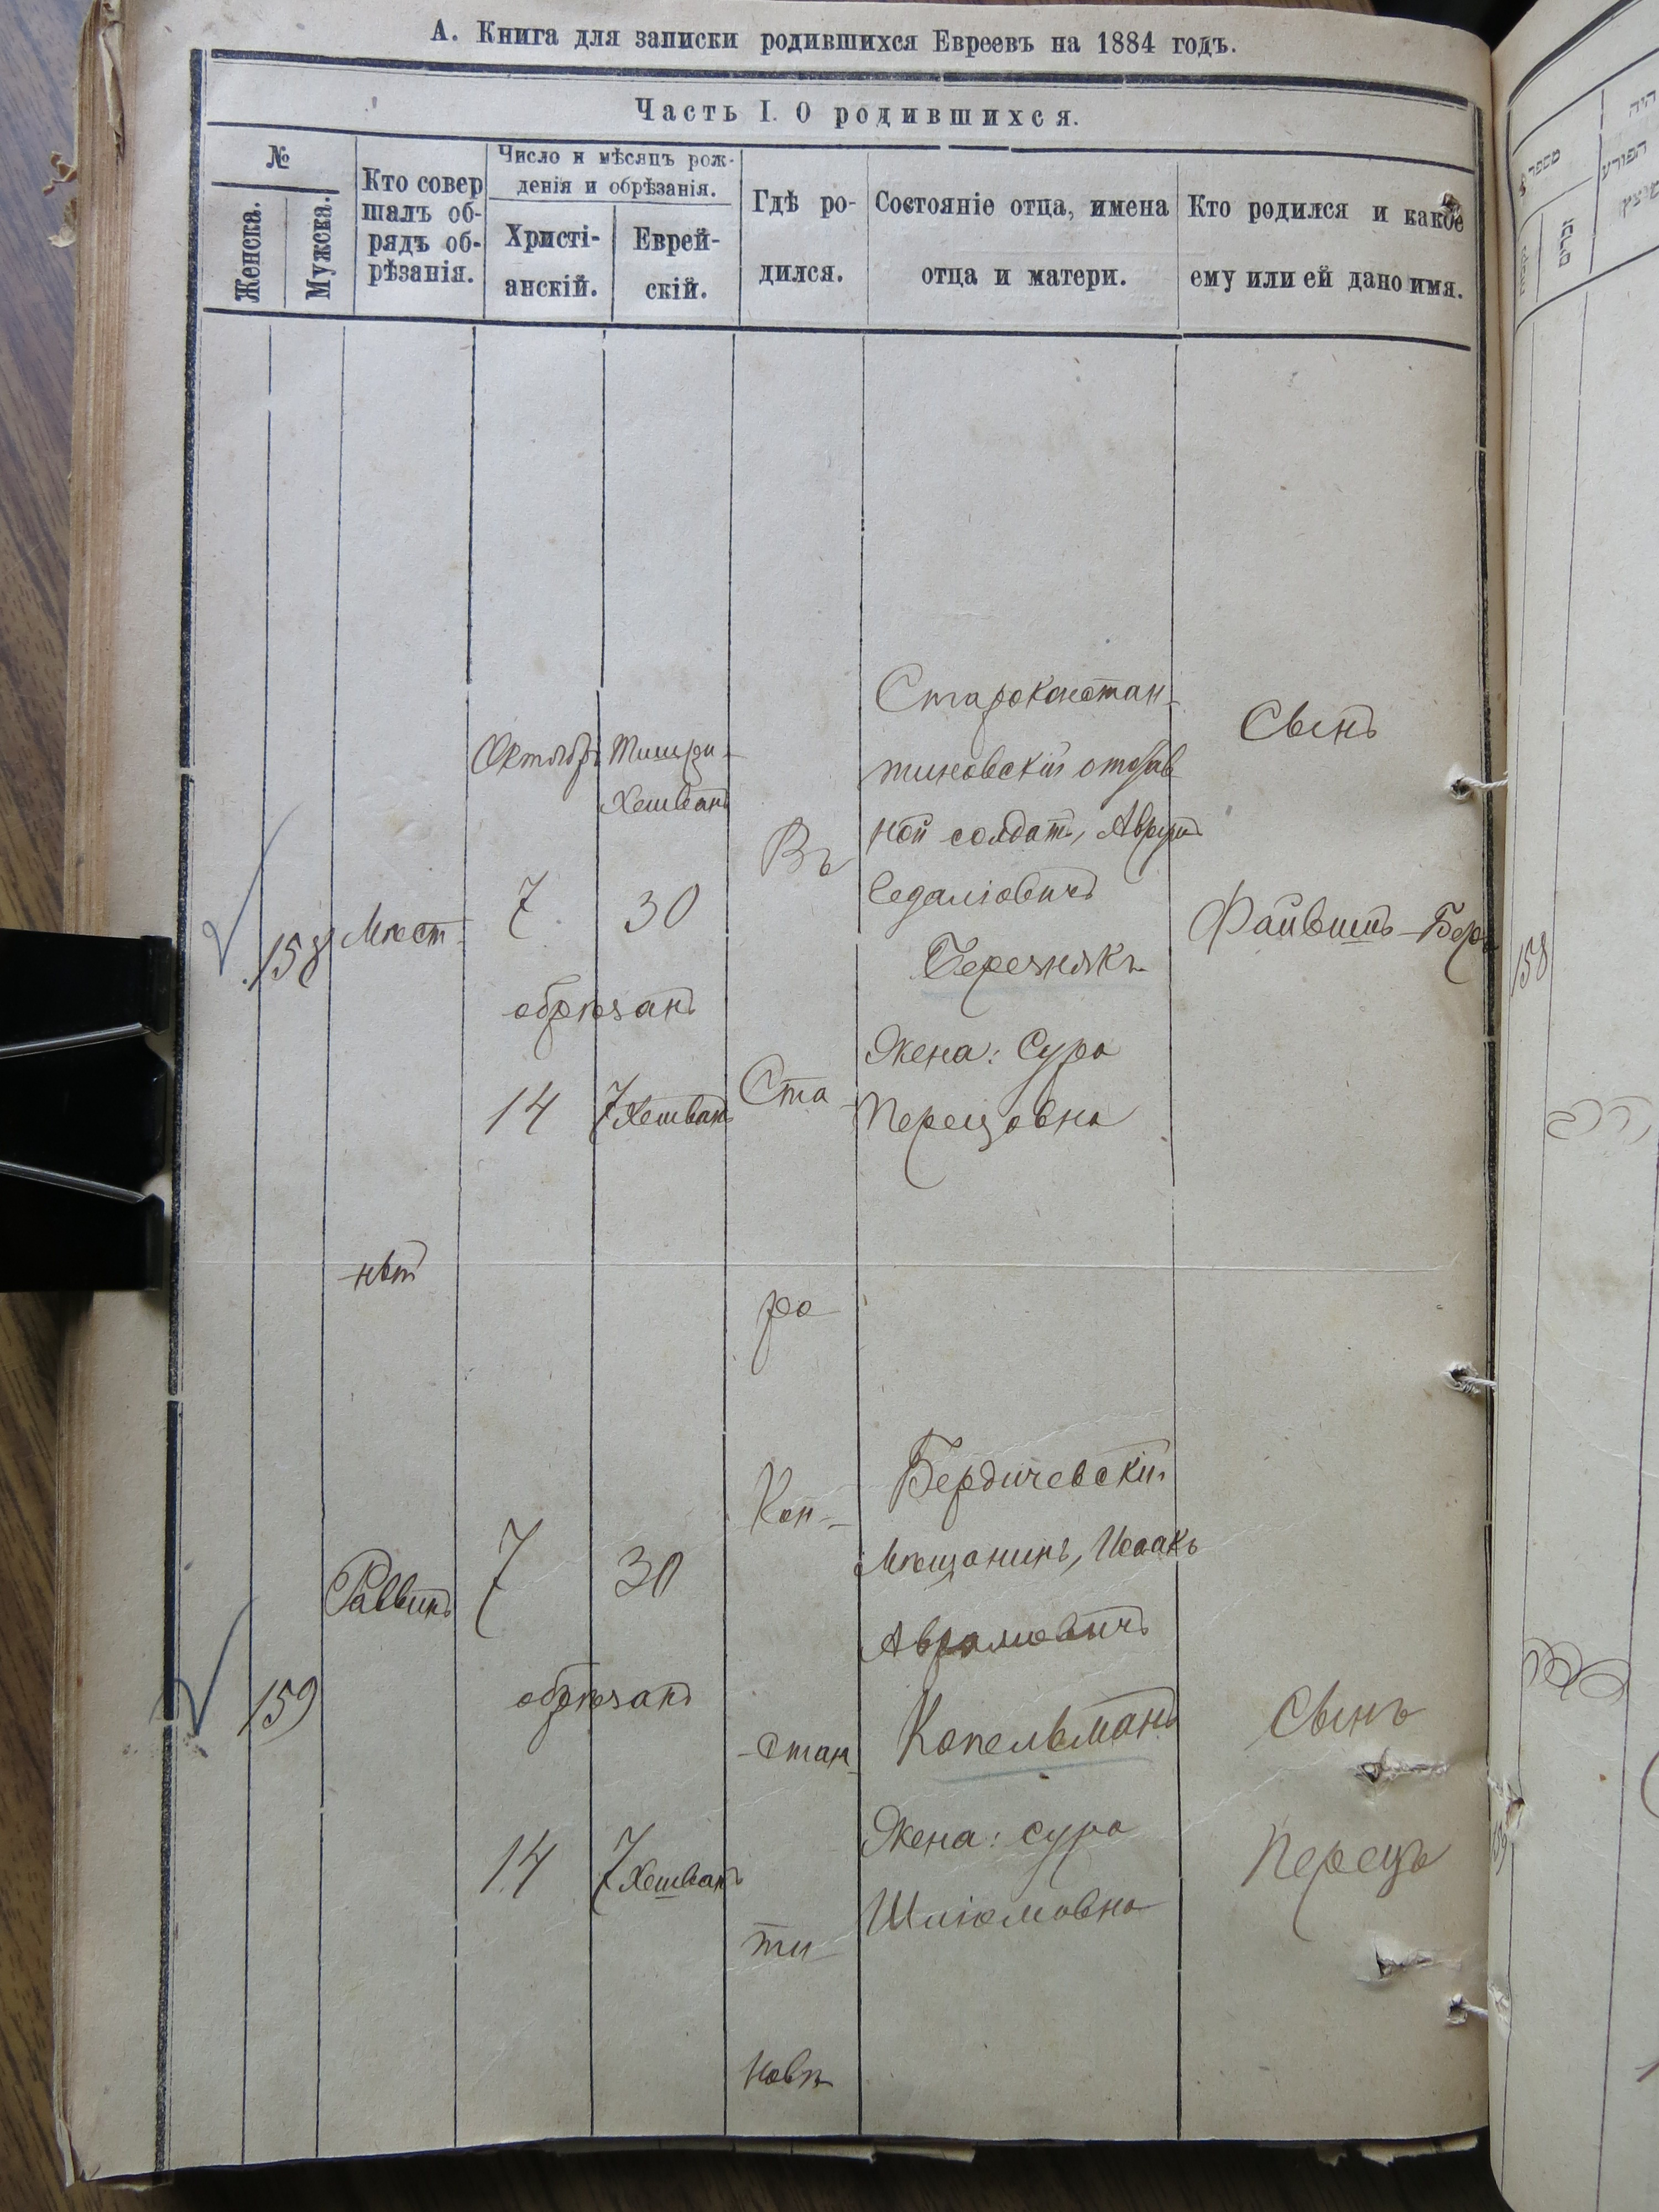 А. Книга для записки родившихся Евреевъ на 1884 годъ.
Часть I. О родившихся.
№
Женска.
Мужска.
Кто совер
шалъ об-
рядъ об-
рѣзанія.
Число и мѣсяцъ рож-
денія и обрѣзанія.
Христі-
анскій.
Еврей-
скій.
Гдѣ ро-
дился.
Состояніе отца, имена
отца и матери.
Кто родился и какое
ему или ей дано имя.
158
Мѣст-
ный
Октябрь
7
обрѣзанъ
14
Тишри-
Хешванъ
30
7 Хешванъ
Въ
Ста
ро
Кон-
стан
ти
новѣ
Староконстан-
тиновскій отстав
ной солдатъ,
Березнякъ
Жена: Сура
Перецовна
Сынъ
Файвишъ-Беръ
159
Раввинъ
7
обрѣзанъ
14
30
7 Хешванъ
Бердичевскій
Мѣщанинъ, Исаакъ
Аврамовичъ
Копельманъ
Жена: Сура
Шліомовна
Сынъ
Перецъ
158
159